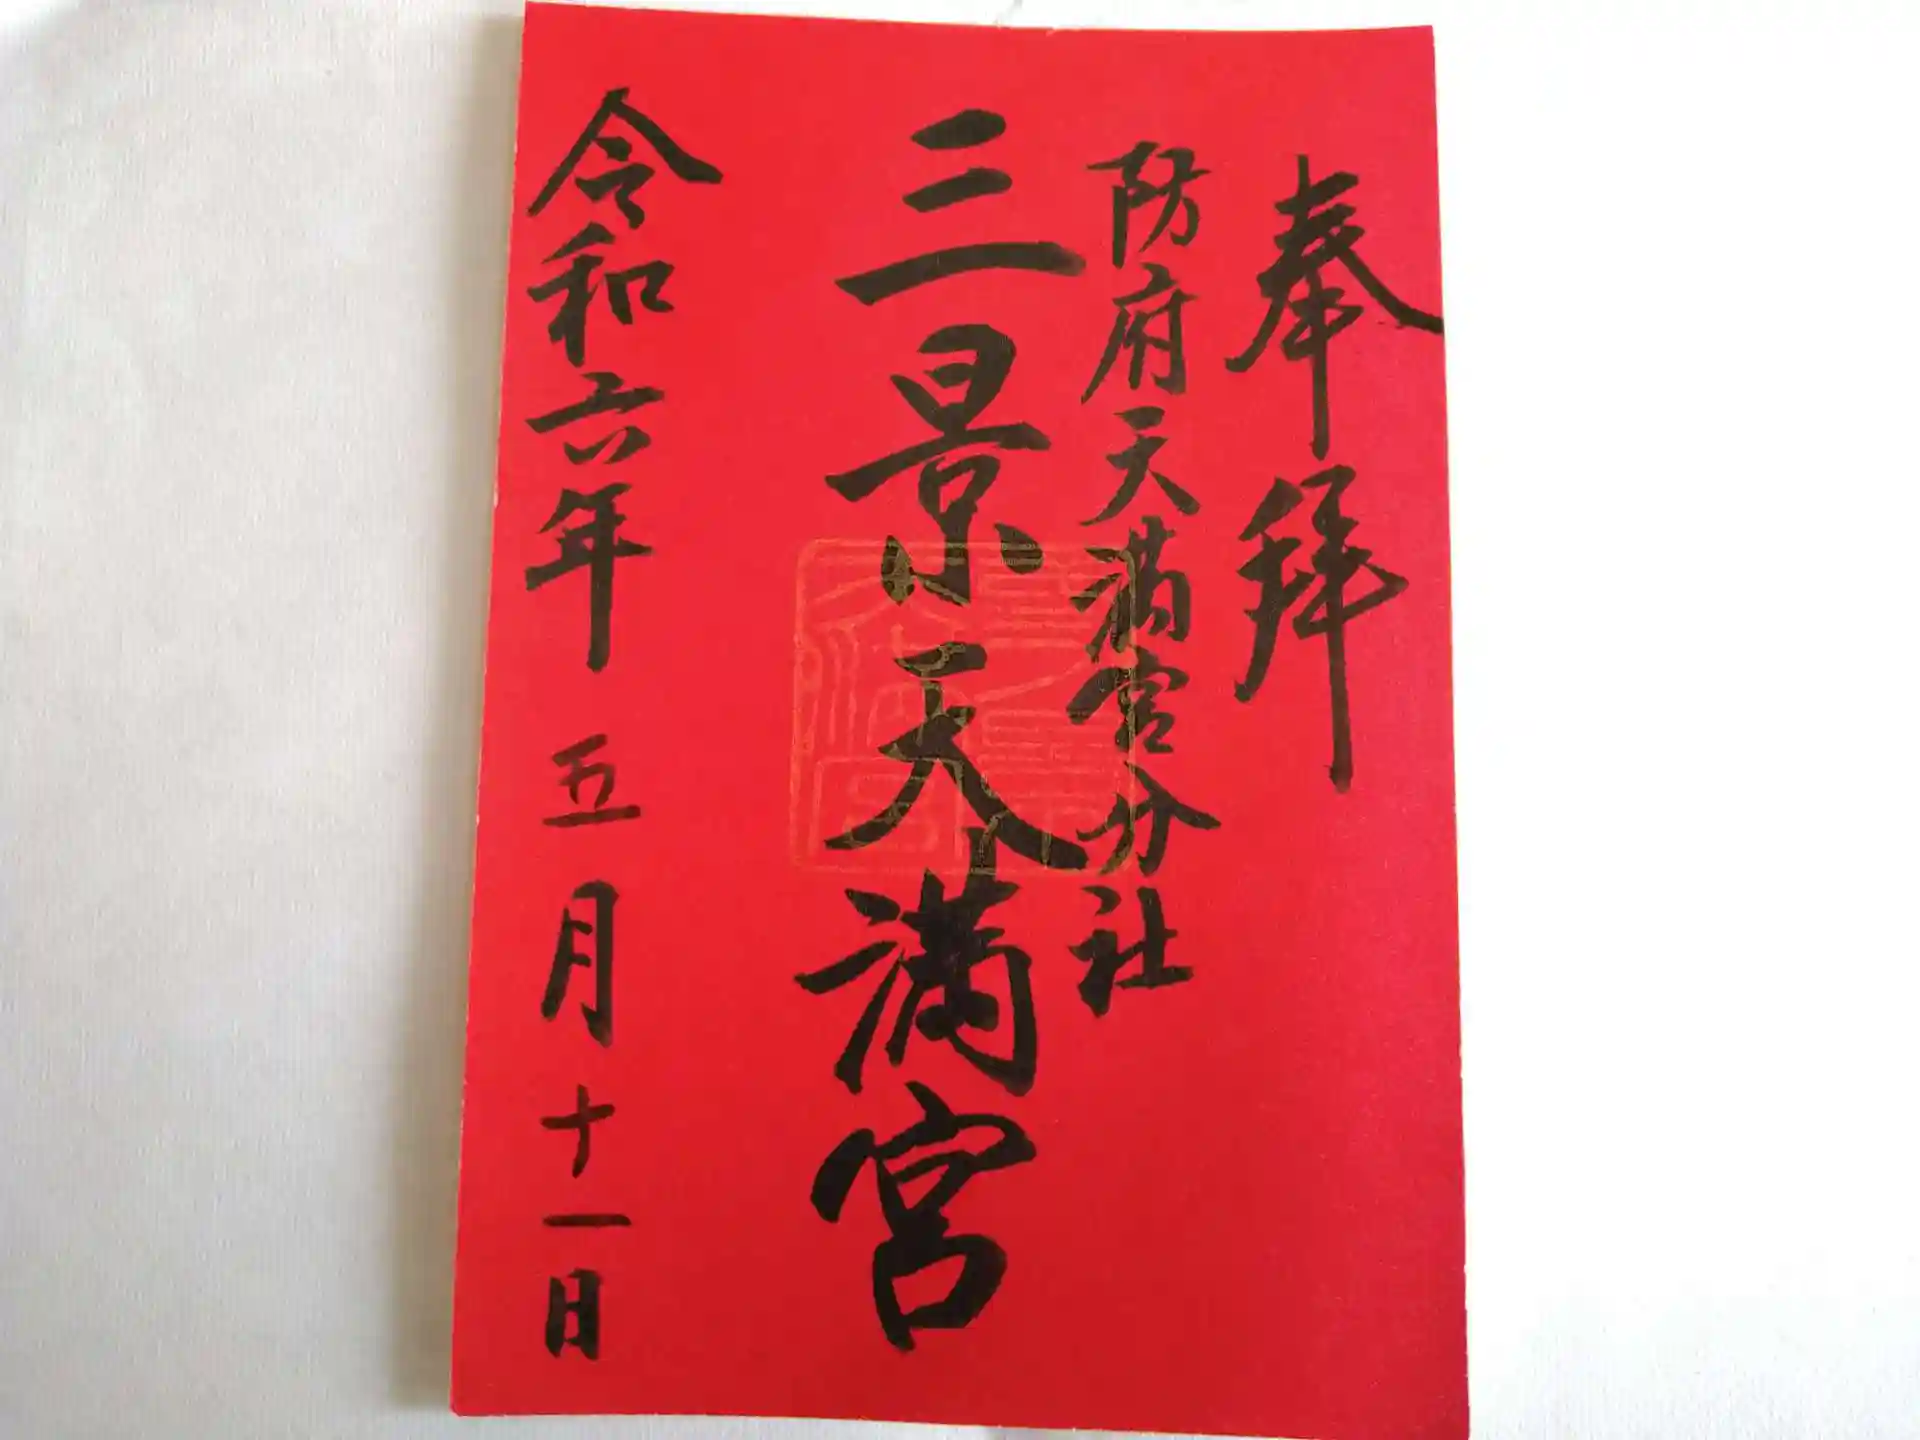 奉拜
防府天満宮分社
三景天満宮
令和六年五月十一日